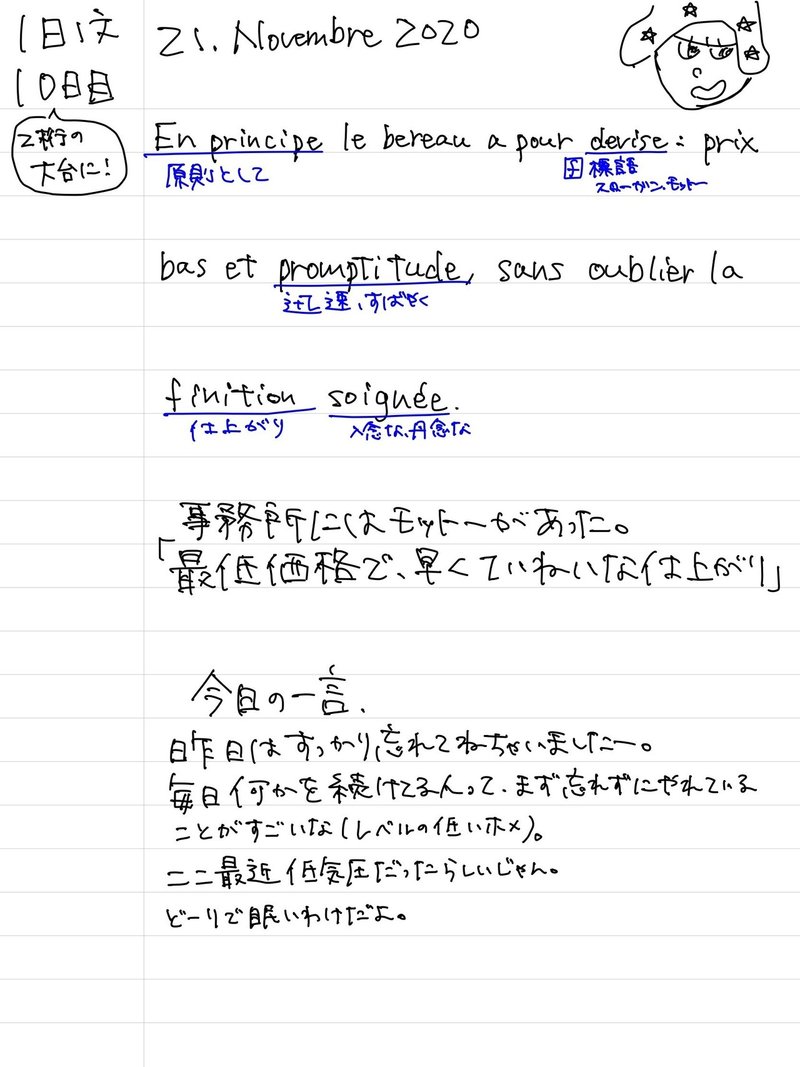 1日1文
21. Novembre 2020
10日目
2桁の
大台に!
En principe le bereau a pour devise : prix
原則として
f 標語
スローガン、モットー
bas et promptitude, sans oublier la
迅速、すばやく
finition soignée.
仕上がり
入念な、丹念な
事務所にはモットーがあった。
「最低価格で、早くていねいな仕上がり」
今日の一言.
昨日はすっかり忘れてねちゃいましたー。
毎日何かを続けてる人って、まず忘れずにやれている
ことがすごいな(レベルの低いホメ)。
ここ最近低気圧だったらしいじゃん。
どーりで眠いわけだよ。